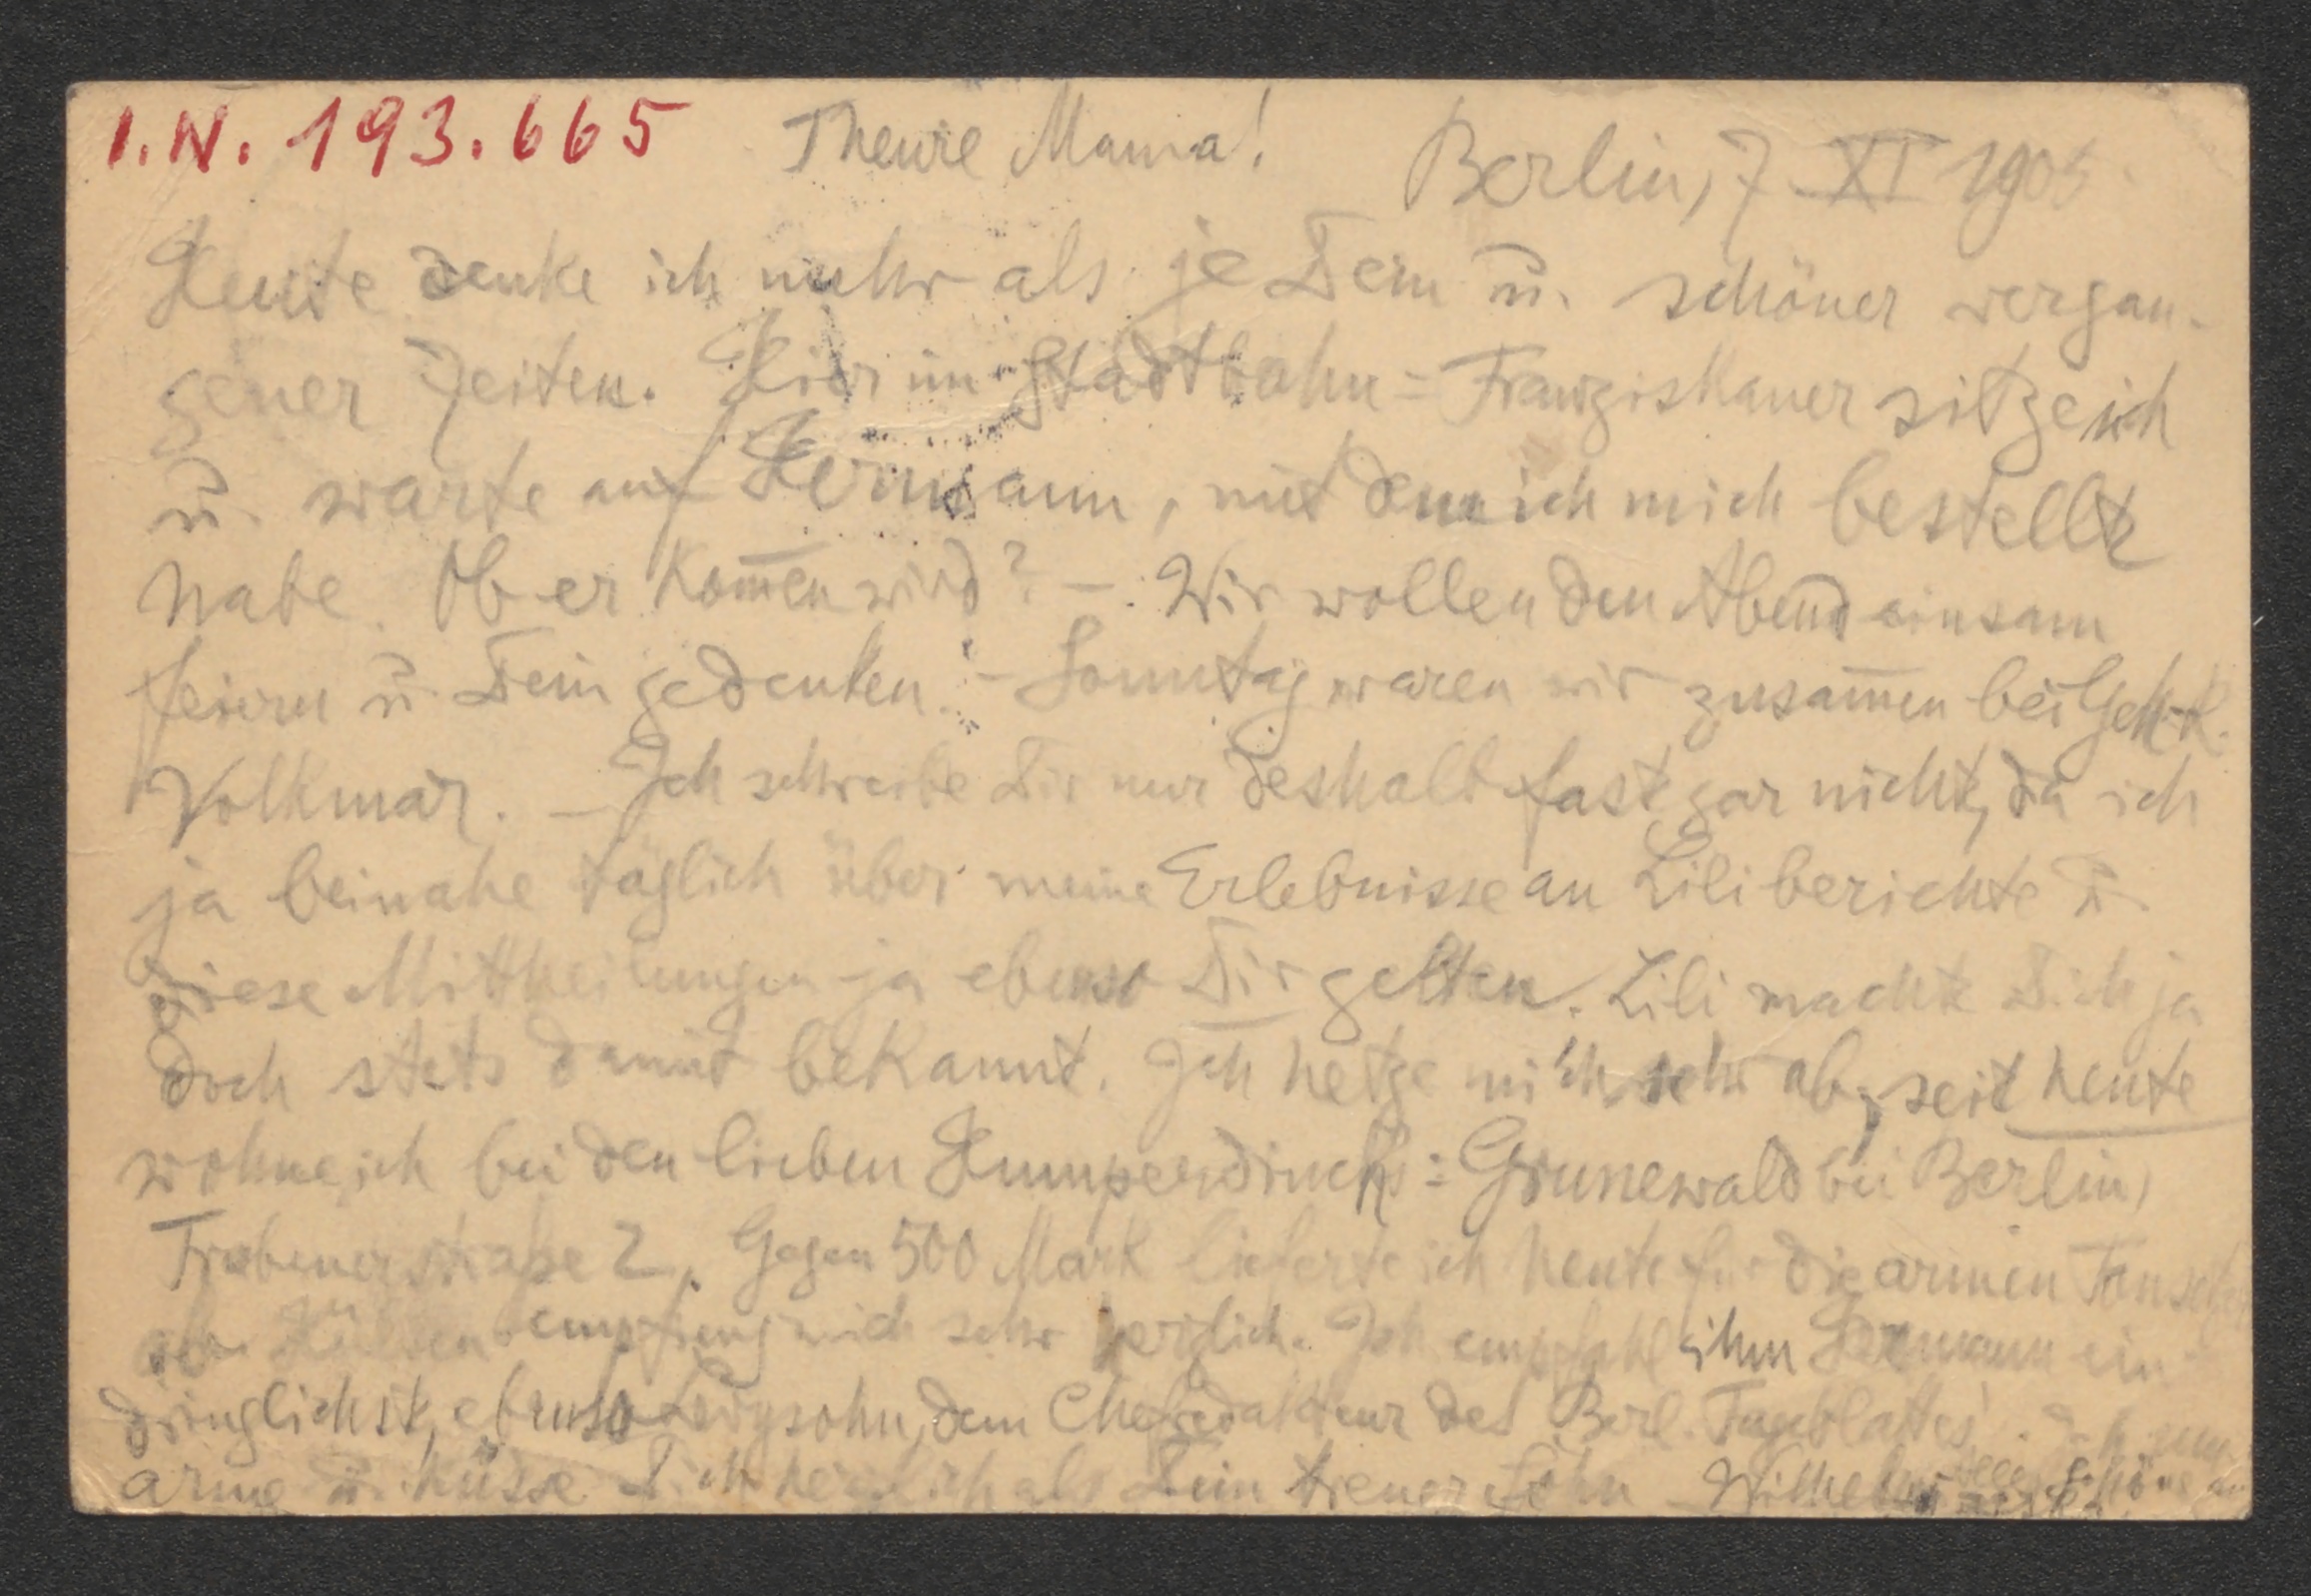 I.N. 193.665
Theure Mama!
Berlin, 7 XI 1905
Heute denke ich mehr als je Dein u. schöner vergan-
gener Zeiten. Hier im Stadtbahn=Franziskaner sitze ich
u. warte auf Hermann, mit dem ich mich bestellt
habe. Ob er kom̅en wird? – Wir wollen den Abend einsam
feiern u. Dein gedenken. – Sonntag waren wir zusam̅en bei Geh. R.
Volkmar. – Ich schreibe Dir nur deshalb fast gar nicht, da ich
ja beinahe täglich über meine Erlebnisse an Lili berichte u.
diese Mittheilungen ja ebenso Dir gelten. Lili macht Dich ja
doch stets damit bekannt. Ich hetze mich sehr ab, seit heute
wohne ich bei den lieben Humperdincks: Grunewald bei Berlin,
Trabenerstraße 2. Gegen 500 Mark lieferte ich heute für die armen
Hülsen empfing mich sehr herzlich. Ich empfahl ihm Hermann ein-
dringlichst, ebenso Levysohn, dem Chefredakteur des Berl. Tageblattes. Ich um-
arme u. küsse Dich herzlich als Dein treuer Sohn Wilhelm